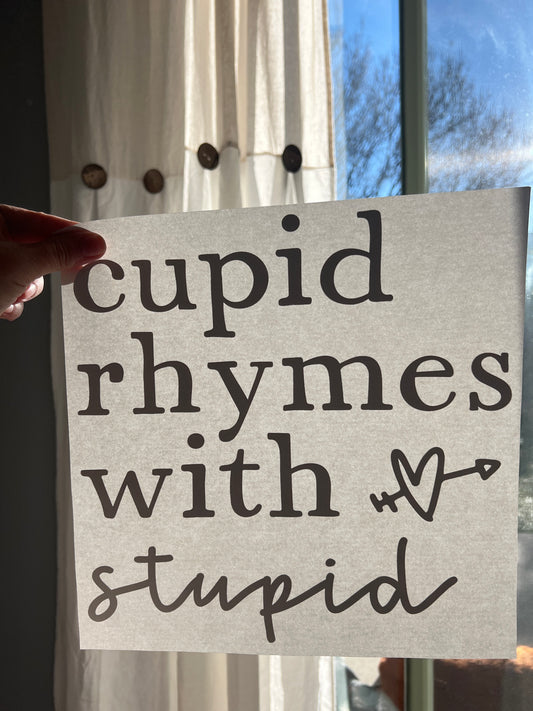 cupid
rhymes
with
stupid